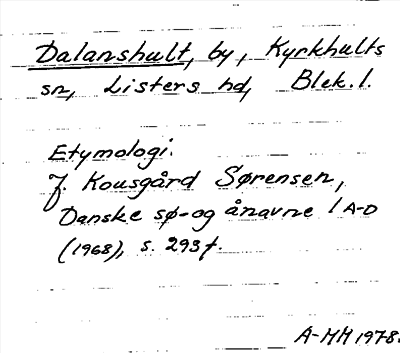 Dalanshult, by, Kyrkhults
sn, Listers hd, Blek. l.
Etymologi.
J. Kousgård Sørensen,
Danske sø- og ånavne 1 A-D
(1968), s. 293 f.
A-MM 1978.